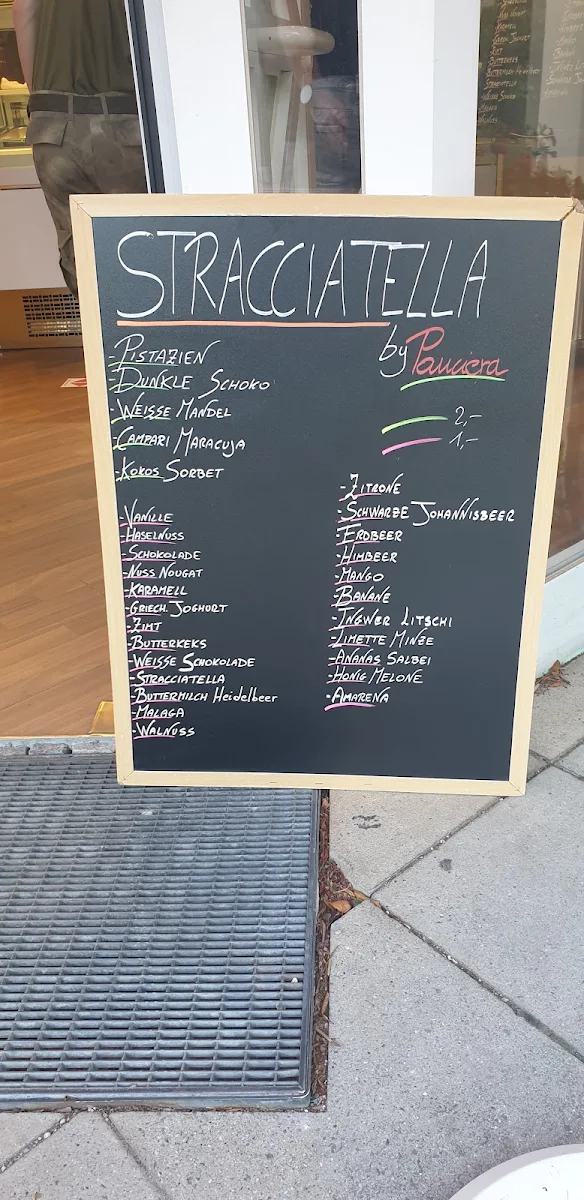 STRACCIATELLA
by Panciera
- PISTAZIEN
- DUNKLE SCHOKO
- WEISSE MANDEL
- CAMPARI MARACUJA
- KOKOS SORBET
2,-
1,-
- VANILLE
- HASELNUSS
- SCHOKOLADE
- NUSS NOUGAT
- KARAMELL
- GRIECH. JOGHURT
- ZIMT
- BUTTERKEKS
- WEISSE SCHOKOLADE
- STRACCIATELLA
- BUTTERMILCH Heidelbeer
- MALAGA
- WALNUSS
- ZITRONE
- SCHWARZE JOHANNISBEER
- ERDBEER
- HIMBEER
- MANGO
- BANANE
- INGWER LITSCHI
- LIMETTE MINZE
- ANANAS SALBEI
- HONIG MELONE
- AMARENA